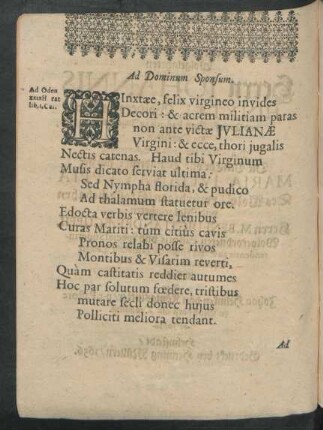 Ad Dominum Sponsum.
Ad Oden
xxixH rat
lib, 1, Car.
HInxtæe, felix virgineo invides
Decori: & acrem militiam paras
non ante victæ JVLIANÆ
Virgini: & ecce, thori jugalis
Nectis catenas. Haud tibi Virginum
Musis dicato serviat ultima:
Sed Nympha florida, & pudico
Ad thalamum statuetur ore.
Edocta verbis vertere lenibus
Curas Mariti: tùm citiùs cavis
Pronos relabi posse rivos
Montibus & Visarim reverti,
Quàm castitatis reddier autumes
Hoc par solutum fœdere, tristibus
mutare secli donec hujus
Polliciti meliora tendant.
Ad